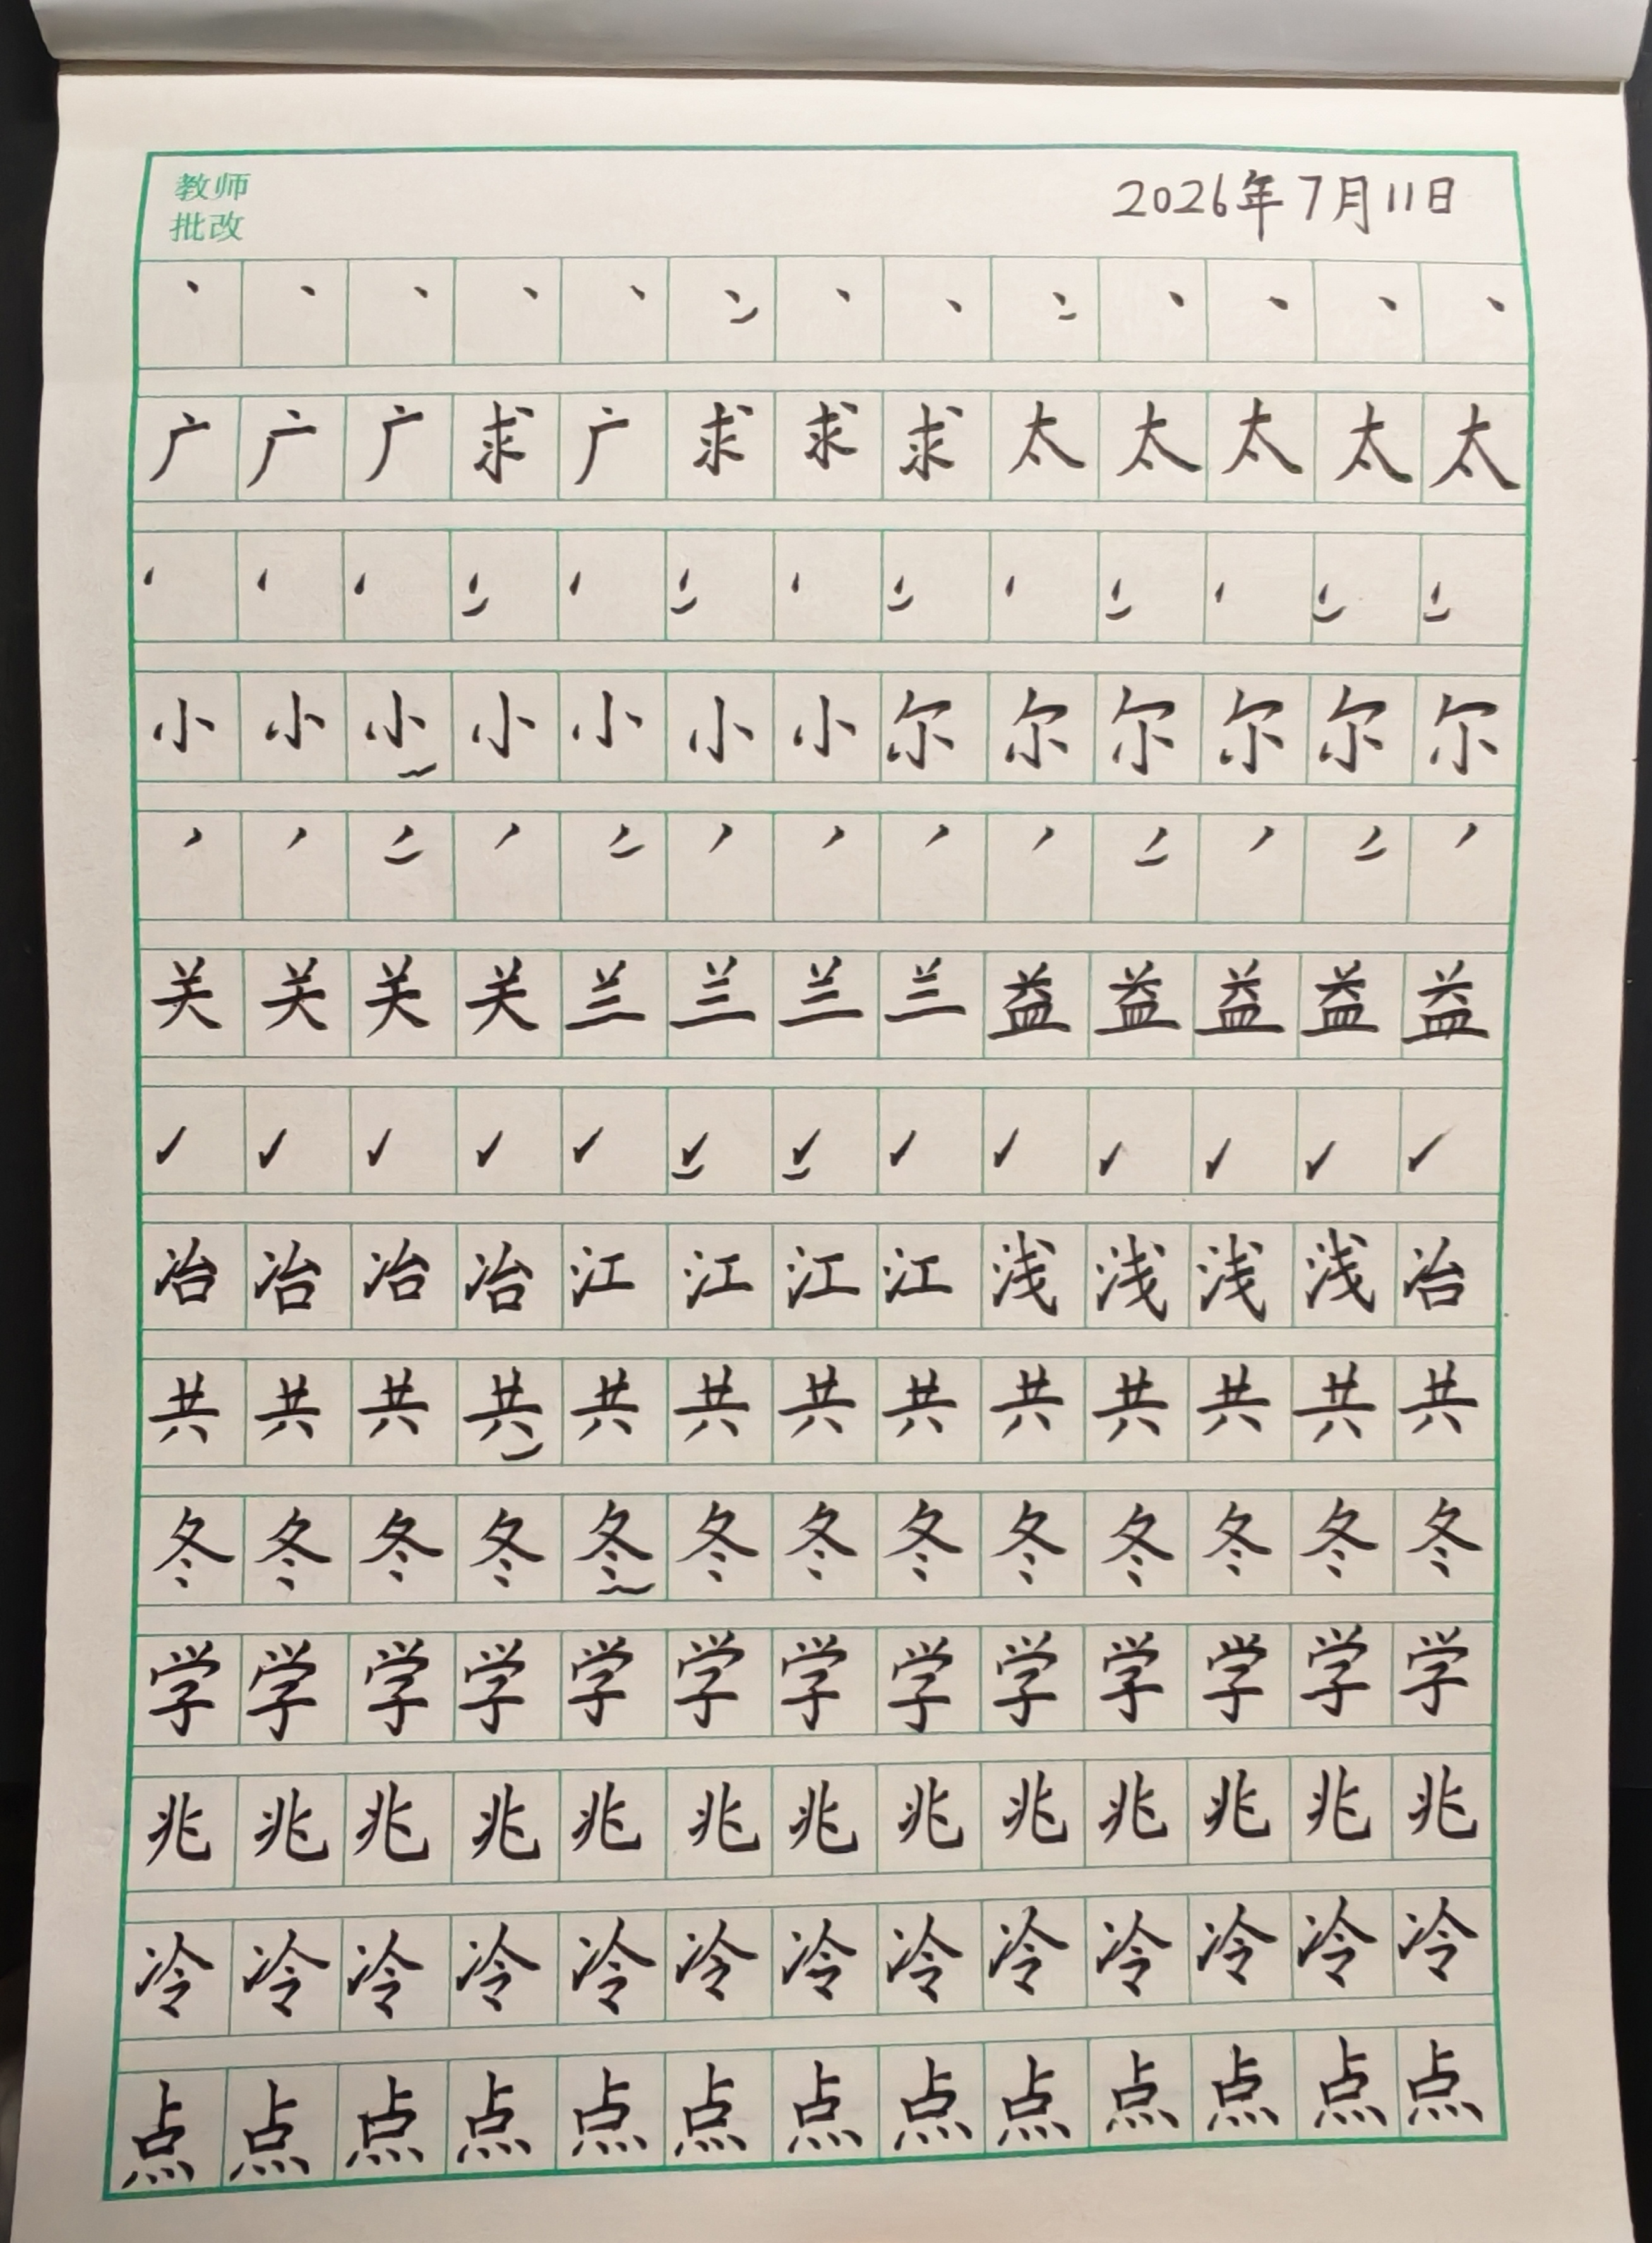 教师
批改
2026年7月11日
丶 丶 丶 丶 丶 丶 丶 丶 丶 丶 丶 丶 丶
广 广 广 求 广 求 求 求 太 太 太 太 太
小 小 小 小 小 小 小 尔 尔 尔 尔 尔 尔
关 关 关 关 兰 兰 兰 兰 益 益 益 益 益
冶 冶 冶 冶 江 江 江 江 浅 浅 浅 浅 冶
共 共 共 共 共 共 共 共 共 共 共 共 共
冬 冬 冬 冬 冬 冬 冬 冬 冬 冬 冬 冬 冬
学 学 学 学 学 学 学 学 学 学 学 学 学
兆 兆 兆 兆 兆 兆 兆 兆 兆 兆 兆 兆 兆
冷 冷 冷 冷 冷 冷 冷 冷 冷 冷 冷 冷 冷
点 点 点 点 点 点 点 点 点 点 点 点 点